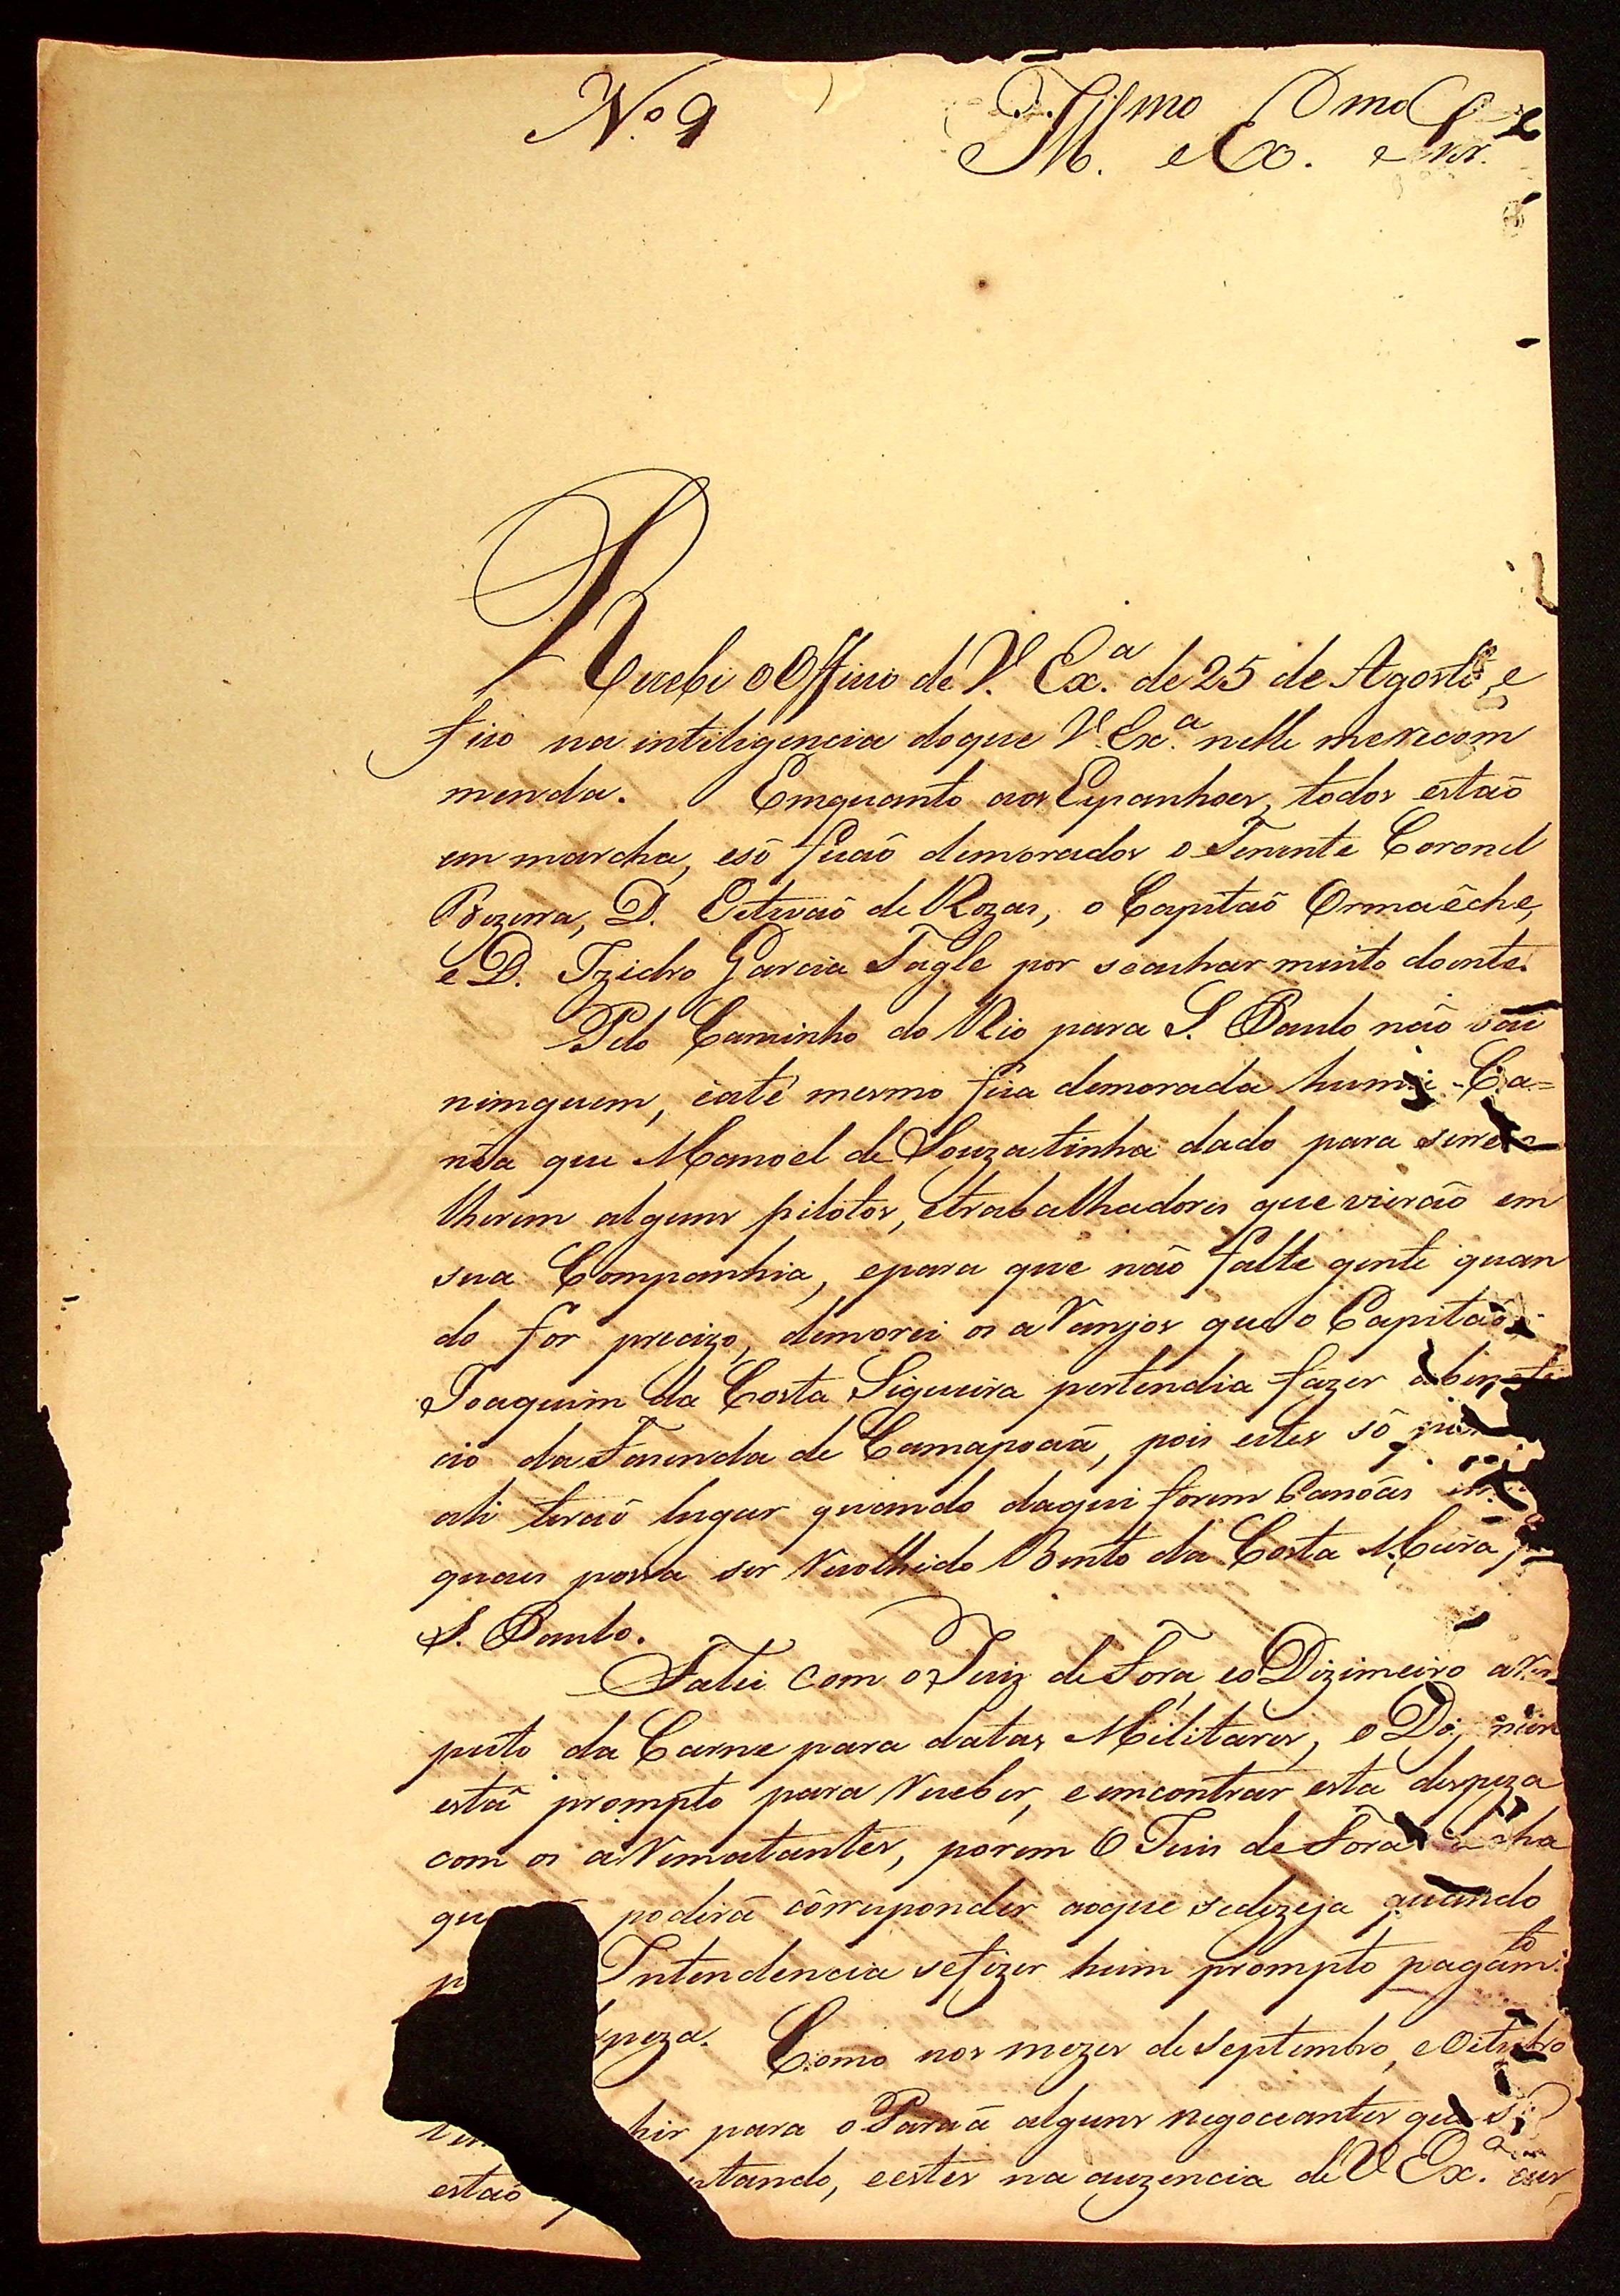 N.º 9
Ill.mo e Ex.mo Snr.
Recebi o Officio de V. Ex.ª de 25 de Agosto, e
fico na inteligencia doque V. Ex.ª nelle merecom
menda. Emquanto aos Espanhoes, todos estaõ
em marcha, esó ficaõ demorados o Tenente Coronel
Bezerra, D. Estevaõ de Rozas, o Capitaõ Ormaêche,
e D. Izidro Garcia Tagle por seachar muito doente.
Pelo Caminho do Rio para S. Paulo não vai
nimguem, eaté mesmo fica demorada huma Ca=
nôa que Manoel de Souza tinha dado para serreco
lherem alguns pilotos, etrabalhadores que vierão em
sua Companhia, epara que não falte gente quan
do for precizo, demorei os aRanjos que o Capitaõ
Joaquim da Costa Sigueira pertendia fazer abenefi
cio da Fazenda de Camapoaã, pois estes só
ali teraõ lugar quando daqui forem Canôas
quaes possa ser Recolhido Bento da Costa
S. Paulo.
Falei com o Juiz de Fora, eo Dizimeiro aRes
peito da Carne para datas Militares, o
está prompto para Receber, e emcontrar esta despeza
com os aRematantes, porem o Juis de Fora acha
poderá côrresponder aoque sedezeja quando
Intendencia sefizer hum prompto pagam.to
Como nos mezes de Septembro, e Oitubro
para o Pará alguns negoceantes que
estaõ eestes na auzencia de V. Ex.ª